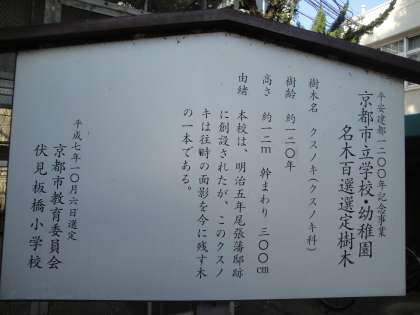 平安建都一二〇〇年記念事業
京都市立学校・幼稚園
名木百選選定樹木
樹木名 クスノキ(クスノキ科)
樹齢 約一二〇年
高さ 約一二m 幹まわり 三〇〇cm
由緒 本校は、明治五年尾張藩邸跡
に創設されたが、このクスノ
キは往時の面影を今に残す木
の一本である。
平成七年一〇月六日選定
京都市教育委員会
伏見板橋小学校